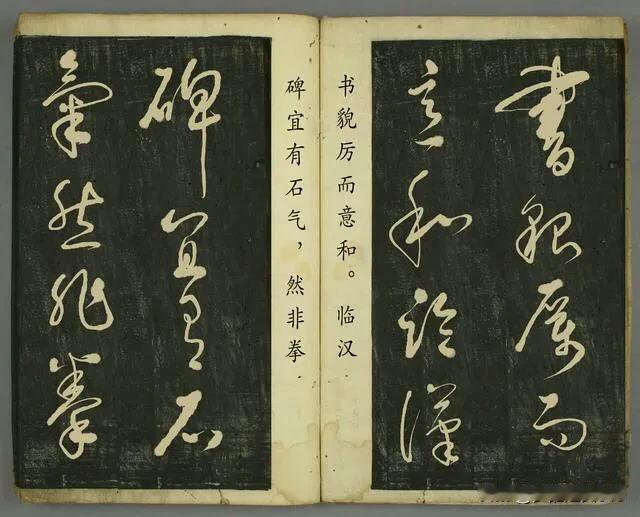 書貌厲而
意和臨漢
书貌厉而意和。临汉
碑宜有石气，然非拳
碑宜有石
氣然非拳